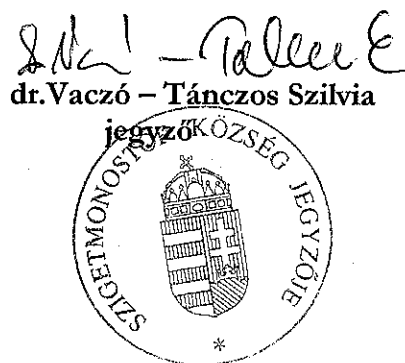 dr.Vaczó – Tánczos Szilvia
jegyző
SZIGETMONOSTOR KÖZSÉG JEGYZŐJE
*